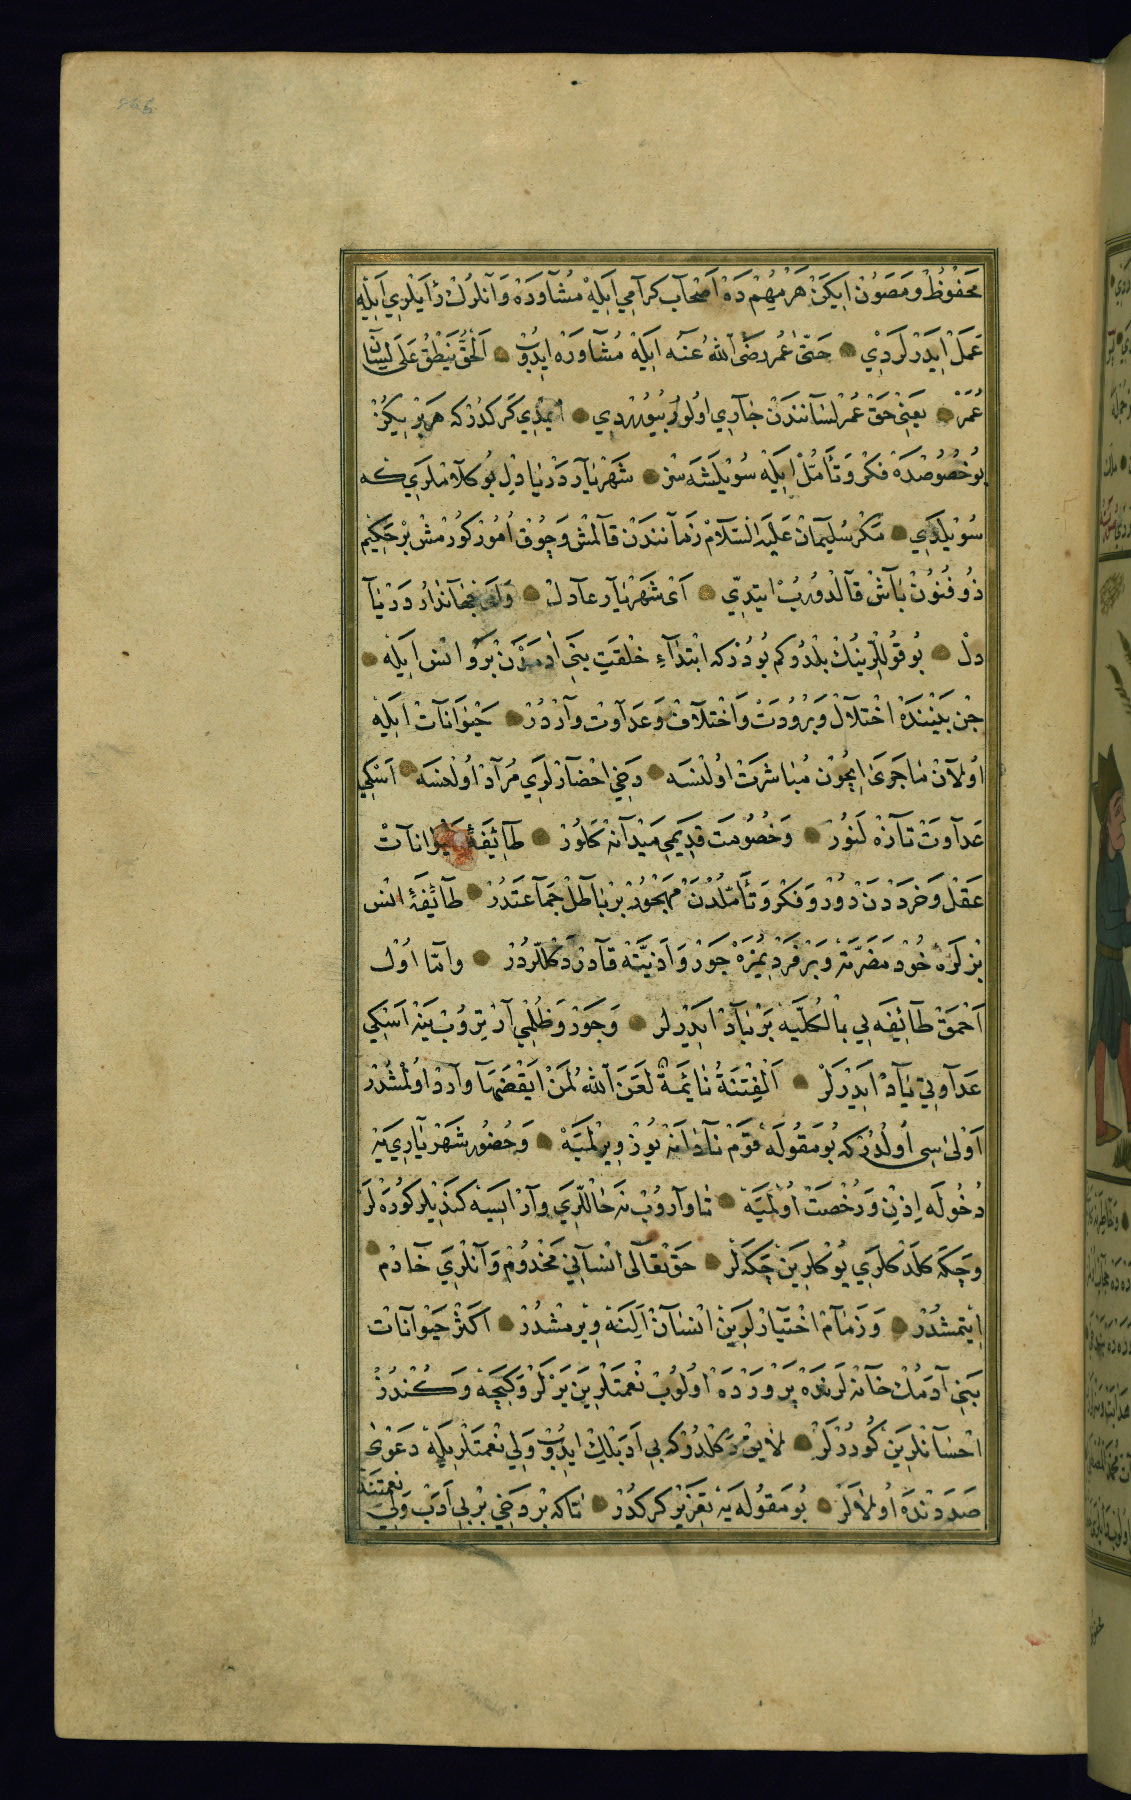 مَحْفُوظْ وَمَصُونْ ايكَنْ هَرْ مُهِمْ دَهْ اَصْحَابِ كِرَامِي ايلَهْ مُشَاوَرَهْ وَآنْلَرُكْ رَأْيْلَرِي ايلَهْ
عَمَلْ ايدَرْلَرْدِي حَتّٰى عُمَرْ رَضِيَ اللّٰهُ عَنْه ايلَهْ مُشَاوَرَهْ ايدُوبْ اَلْحَقُّ يَنْطِقُ عَلٰى لِسَانِ
عُمَرْ يَعْنِي حَقْ عُمَرْ لِسَانِنْدَنْ جَارِي اُولُورْ بُيُورُردِي ايمْدِي كَرَكْدُرْ كِه هَرْ بِرِيكُزْ
بُو خُصُوصْدَهْ فِكْرْ وَتَأَمُّلْ ايلَهْ سُويْلَشَه سِزْ شَهْرِيَارِ دَرْيَا دِلْ بُو كَلَامْلَرِي كه
سُويْلَدِي مَكَرْ سُلَيْمَانْ عَلَيْهِ السَّلَامْ زَمَانِنْدَنْ قَالْمِشْ وَچُوقْ اُمُورْ كُورْمِشْ بِرْ حَكِيمِ
ذُو فُنُونْ بَاشْ قَالْدُورُبْ ايتْدِي اَىْ شَهْرِيَارِ عَادِلْ وَاَىْ جَهَانْدَارِ دَرْيَا
دِلْ بُو قُولْلَرِينُكْ بِلْدُوكُم بُودُرْ كه ابْتِدَاءِ خِلْقَتِ بَنِي اٰدَمْدَنْ بَرُو انْس ايلَهْ
جِنْ بَيْنِنْدَهْ اخْتِلَالْ وَبُرُودَتْ وَاخْتِلَافْ وَعَدَاوَتْ وَارْدُرْ حَيْوَانَاتْ ايلَهْ
اُولَانْ مَاجَرٰى ايچُونْ مُبَاشَرَتْ اُولُنْسَه دَخِي احْضَارْلَرِي مُرَادْ اُولُنْسَه اَسْكِي
عَدَاوَتْ تَازَهْ لَنُورْ وَخُصُومَتِ قَدِيمِي مَيْدَانَه كَلُورْ طَائِفَۀِ حَيْوَانَاتْ
عَقْل وَخِرَدْ دَنْ دُورْ وَفِكْرْ وَتَأَمُّلْدَنْ مَهْجُورْ بِرْ بَاطِلْ جَمَاعَتْدُرْ طَائِفَۀِ انْس
بِزْلَرَه خُودْ مَضَرَّتَه وَبِرْ فَرْدِيمُزَهْ جَوْرْ وَاَذِيَّتَه قَادِرْ دَكْلْلَرْدُرْ وَامَّا اُولْ
اَحْمَقْ طَائِفَه يِي بِالْكُلِّيَه بَرْبَادْ ايدَرْلَر وَجَوْرْ وَظُلْمِي آرْتِرُوبْ يِنَه اَسْكِي
عَدَاوَتِي يَادْ ايدَرْلَرْ اَلْفِتْنَةُ نَايِمَةٌ لَعَنَ اللّٰهُ لِمَنْ اَيْقَضَهَا وَارِدْ اُولْمِشْدُرْ
اَوْلٰى سِي اُولْدُرْ كِه بُو مَقُولَه قَوْمِ نَادَانَه يُوزْ وِيرِلْمَيَهْ وَحُضُورِ شَهْرِيَارِي يَه
دُخُولَه اِذِنْ وَرُخْصَتْ اُولْمَيَه تَا وَارُوبْ نَه حَالْلَرِي وَارْ ايسَه كَنْدِيلَر كُورَهْ لَرْ
وَچَكَه كَلْدُكْلَرِي يُوكْلَرِينْ چَكَه لَرْ حَقْ تَعَالٰى انْسَانِي مَخْدُومْ وَآنْلَرِي خَادِمْ
ايتْمِشْدُرْ وَزِمَامِ اخْتِيَارْلَرِينْ انْسَانْ اَلِنَه وِيرْمِشْدُرْ اَكْثَرِ حَيْوَانَاتْ
بَنِي آدَمُكْ خَانَه لَرِنْدَهْ پَرْوَرْدَهْ اُولُوبْ نِعْمَتْلَرِينْ يَرْلَرْ وَكِيجَه وَكُنْدُزْ
احْسَانْلَرِينْ كُورُرْلَرْ لَايِقْ دَكْلْدُرْ كه بِي اَدَبْلِكْ ايدُوبْ وَلِي نِعْمَتْلَرِيلَه دَعْوٰى
صَدَدِنْدَه اُولَالَرْ بُو مَقُولَه يَه تَعْزِيرْ كَرَكْدُرْ تَاكِه بِرْ دَخِي بِرْ بِي اَدَبْ وَلِي نِعْمَتِنَه